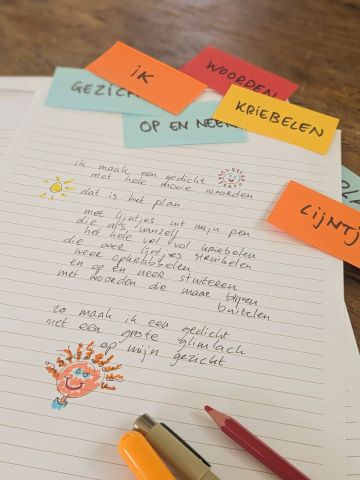 WOORDEN
iK
GEZICH
KRIEBELEN
OP EN NEER
LIJNTJ
ik maak een gedicht
met hele mooie woorden
dat is het plan
met lijntjes uit mijn pen
die als vanzelf
het hele vel vol kriebelen
die over lijntjes struikelen
weer opkrabbelen
en op en neer stuiteren
met woorden die maar blijven
buitelen
zo maak ik een gedicht
met een grote glimlach
op mijn gezicht